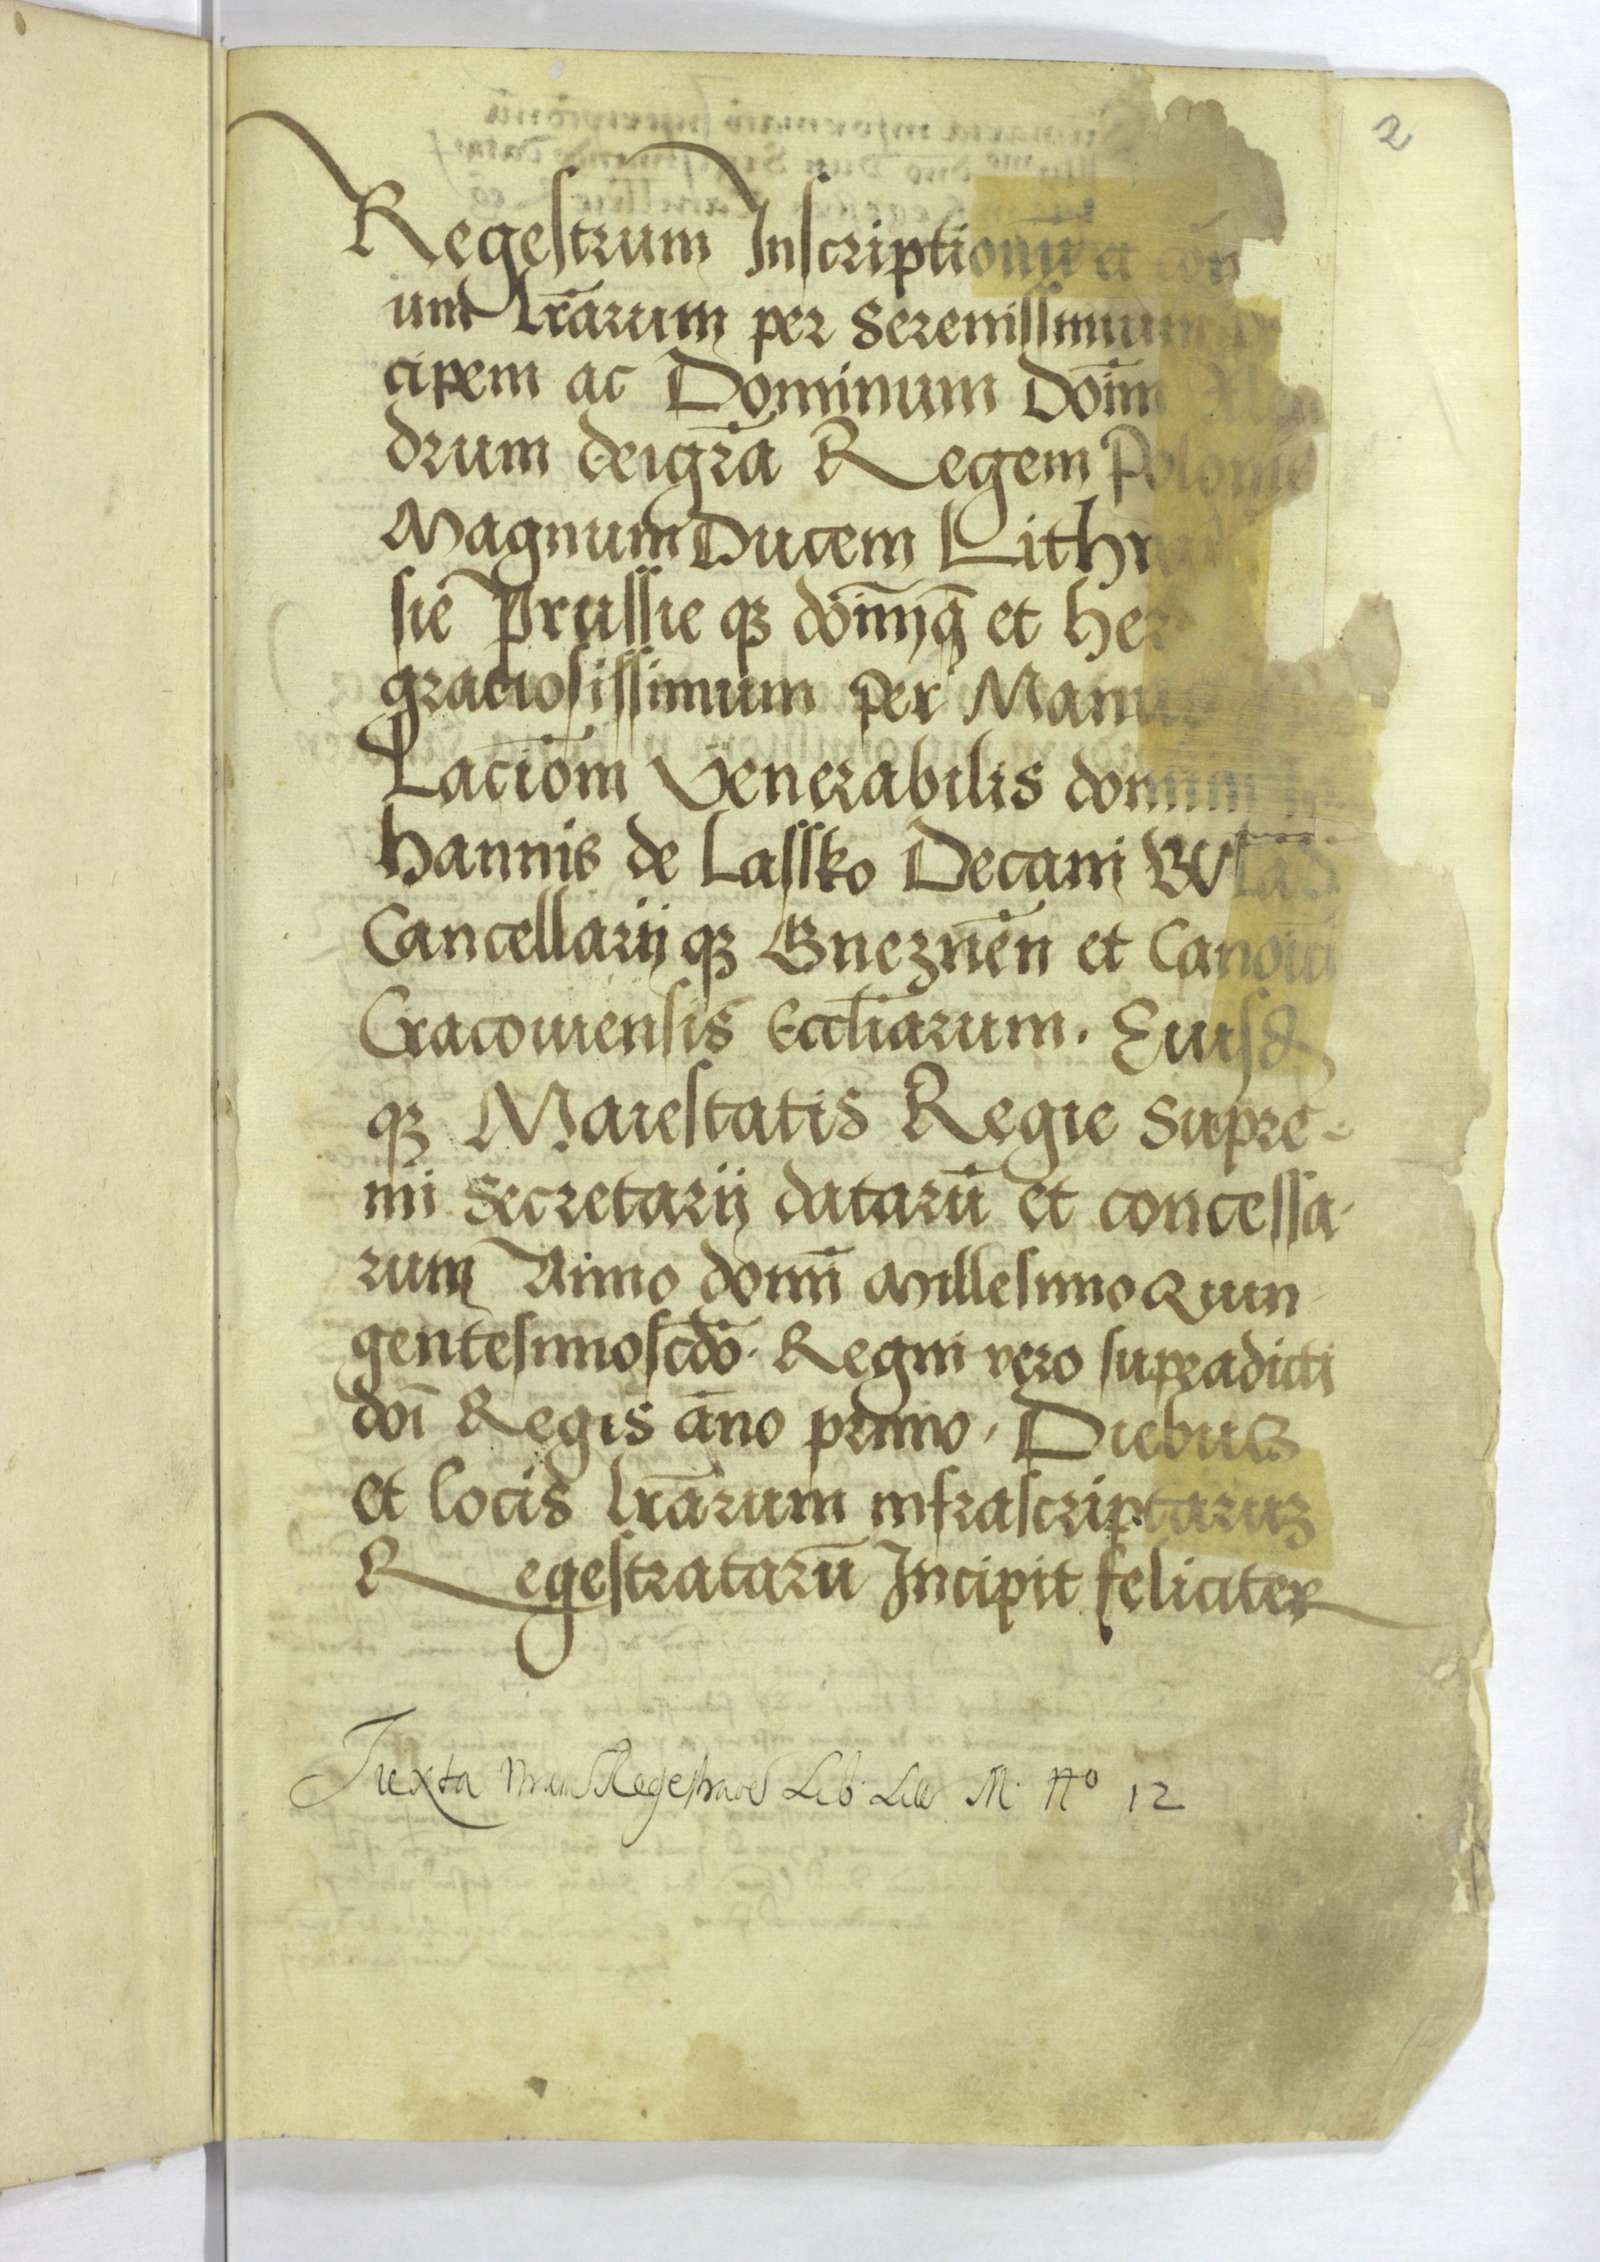 2
Regestrum Inscriptionū et con
um lr̄arum per Serenissimum
cipem ac Dominum Dōin
drum deigr̄a Regem Polonie
Magnum Ducem Lith
sie Prussie qꝫ dōinq̄ et her
graciosissimum per Manus
Laciōm Venerabilis domini
hannis de Lassko Decani Wlad
Cancellarij qꝫ Gneznēn et Canōici
Cracouiensis Eccl̄iarum. Euisd
qꝫ Maiestatis Regie Supre-
mi Secretarij datarū et concessa-
rum Anno domī Millesimo Quin
gentesimoscdō. Regni vero supradicti
doī Regis āno primo. Diebus
et locis lr̄arum infrascriptaruꝫ
Regestratarū Incipit feliciter
Iuxta Lib. M. No 12